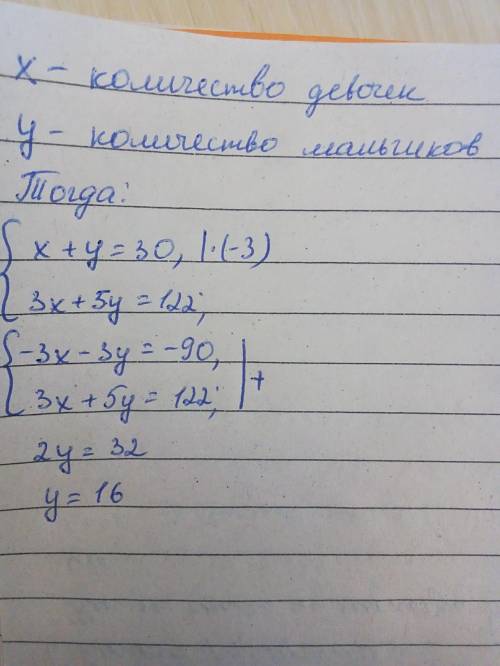 x - количество девочек
y - количество мальчиков
Тогда:
{ x + y = 30, | · (-3)
3x + 5y = 122;
{ -3x - 3y = -90, | +
3x + 5y = 122;
2y = 32
y = 16